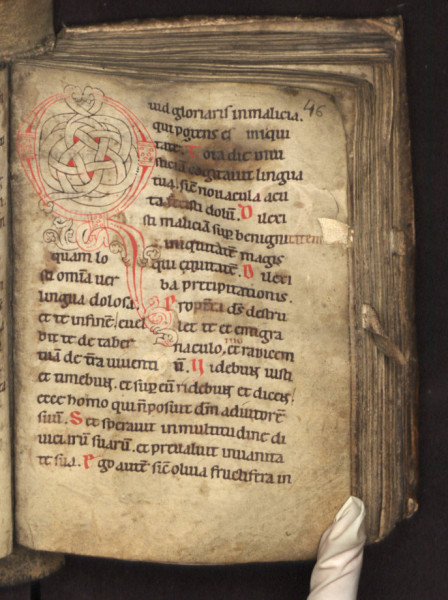 46
Quid gloriaris in malicia.
qui potens es iniqui
tate. Tota die iniu
ticiam cogitavit lingua
tua. sic̄ novacula acu
ta fecisti dolū. Dilexi
sti maliciā sup̄ benignitatem
iniquitatē magis
quam lo qui equitatē. Dilexi
sti omīa ver ba precipitationis.
lingua dolosa. Propterea dꝰ destru
et te in finē / evel let te et emigra
bit te de taber naculo, et radicem
tuā de t̄ra viventi ū. Videbunt iusti
et timebunt. et sup̄ eū ridebunt et dicent /
ecce homo qui n̄ posuit dm̄ adiutorē
suū. Set speravit in multitudine di
viciarū suarū. et prevaluit in vanita
te sua. Ego autē sic̄ oliva fructifera in